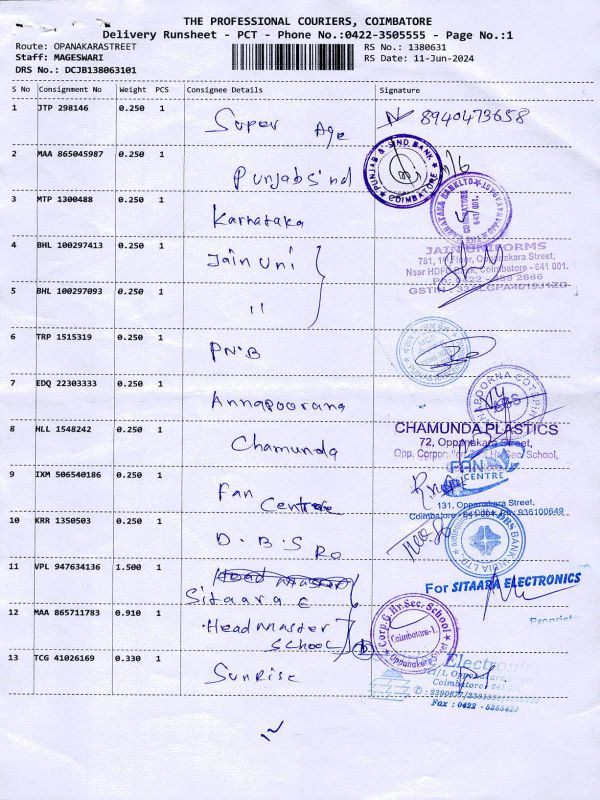 THE PROFESSIONAL COURIERS, COIMBATORE
Delivery Runsheet - PCT - Phone No.:0422-3505555 - Page No.:1
Route: OPANAKARASTREET
Staff: MAGESWARI
DRS No.: DCJB138063101
RS No.: 1380631
RS Date: 11-Jun-2024
S No Consignment No Weight PCS Consignee Details Signature
1 JTP 298146 0.250 1 Super Age 8940473658
2 MAA 865045987 0.250 1 Punjab Sind
PUNJAB & SIND BANK
COIMBATORE
3 MTP 1300488 0.250 1 Karnataka
4 BHL 100297413 0.250 1 Jain Uni
JAIN UNIFORMS
Oppanakara Street,
Coimbatore - 641 001.
5 BHL 100297093 0.250 1 "
6 TRP 1515319 0.250 1 P.N.B
7 EDQ 22303333 0.250 1 Annapoorana
8 HLL 1548242 0.250 1 Chamunda
CHAMUNDA PLASTICS
72, Oppanakara Street,
9 IXM 506540186 0.250 1 Fan Centre
FAN
CENTRE
131, Oppanakara Street,
10 KRR 1350503 0.250 1 D.B.S Ro
11 VPL 947634136 1.500 1 Sitaara E
For SITAARA ELECTRONICS
12 MAA 865711783 0.910 1 Head Master School
Corp.G.Hr.Sec.School
Coimbatore-1
Oppanakara Street
13 TCG 41026169 0.330 1 Sunrise
Electronic
Fax : 0422 - 5385429